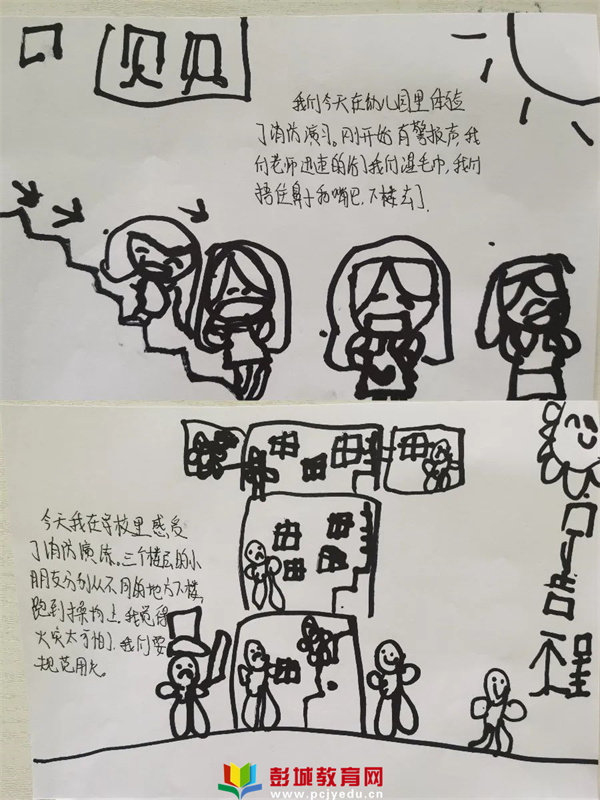 贝贝
我们今天在幼儿园里体验
了消防演习。刚开始有警报声,我
们老师迅速的给了我们湿毛巾,我们
捂住鼻子和嘴巴,下楼去了。
今天我在学校里感受
了消防演练。三个楼层的小
朋友分别从不同的地方下楼,
跑到操场上。我觉得
火灾太可怕了,我们要
规范用火。
彭城教育网
www.pcjyedu.cn